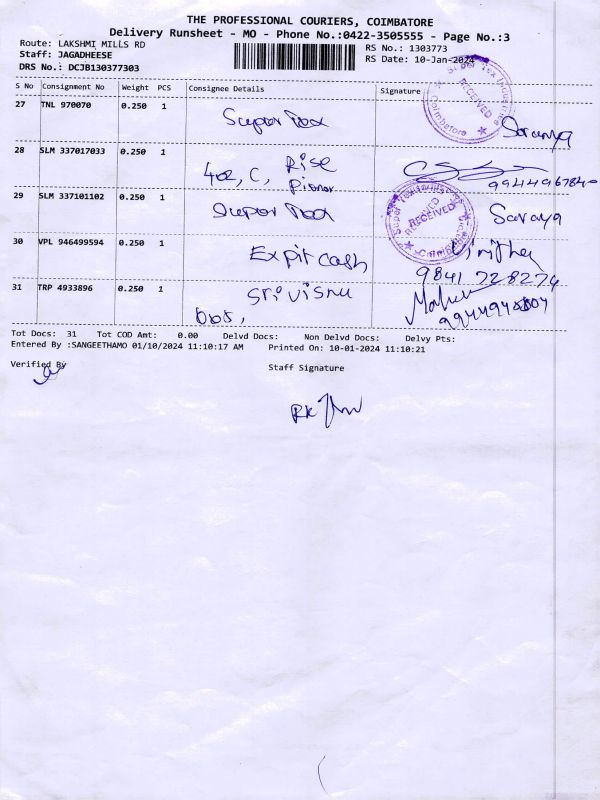 THE PROFESSIONAL COURIERS, COIMBATORE
Delivery Runsheet - MO - Phone No.:0422-3505555 - Page No.:3
Route: LAKSHMI MILLS RD
RS No.: 1303773
Staff: JAGADHEESE
RS Date: 10-Jan-2024
DRS No.: DCJB130377303
S No Consignment No Weight PCS Consignee Details Signature
27 TNL 970070 0.250 1 Super Tex Saranya
Super Tex Industries RECEIVED Coimbatore
28 SLM 337017033 0.250 1 402, C, Rise
9944967840
29 SLM 337101102 0.250 1 Super Tex Saraya
RECEIVED
30 VPL 946499594 0.250 1 Expit cash
9841 728274
31 TRP 4933896 0.250 1 Sri visnu
Tot Docs: 31 Tot COD Amt: 0.00 Delvd Docs: Non Delvd Docs: Delvy Pts:
Entered By :SANGEETHAMO 01/10/2024 11:10:17 AM Printed On: 10-01-2024 11:10:21
Verified By
Staff Signature